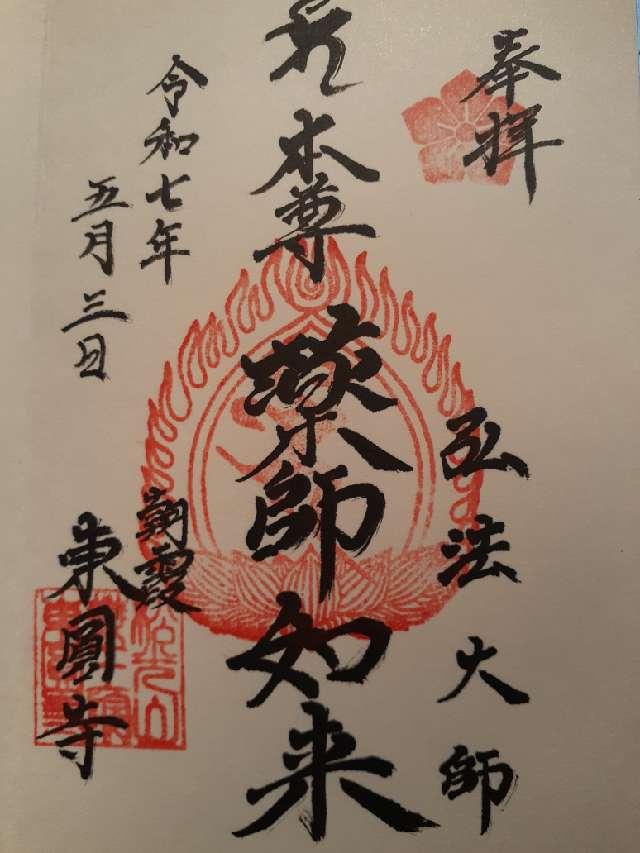 奉拝
弘法大師
本尊
薬師如来
令和七年
五月三日
朝霞
東圓寺